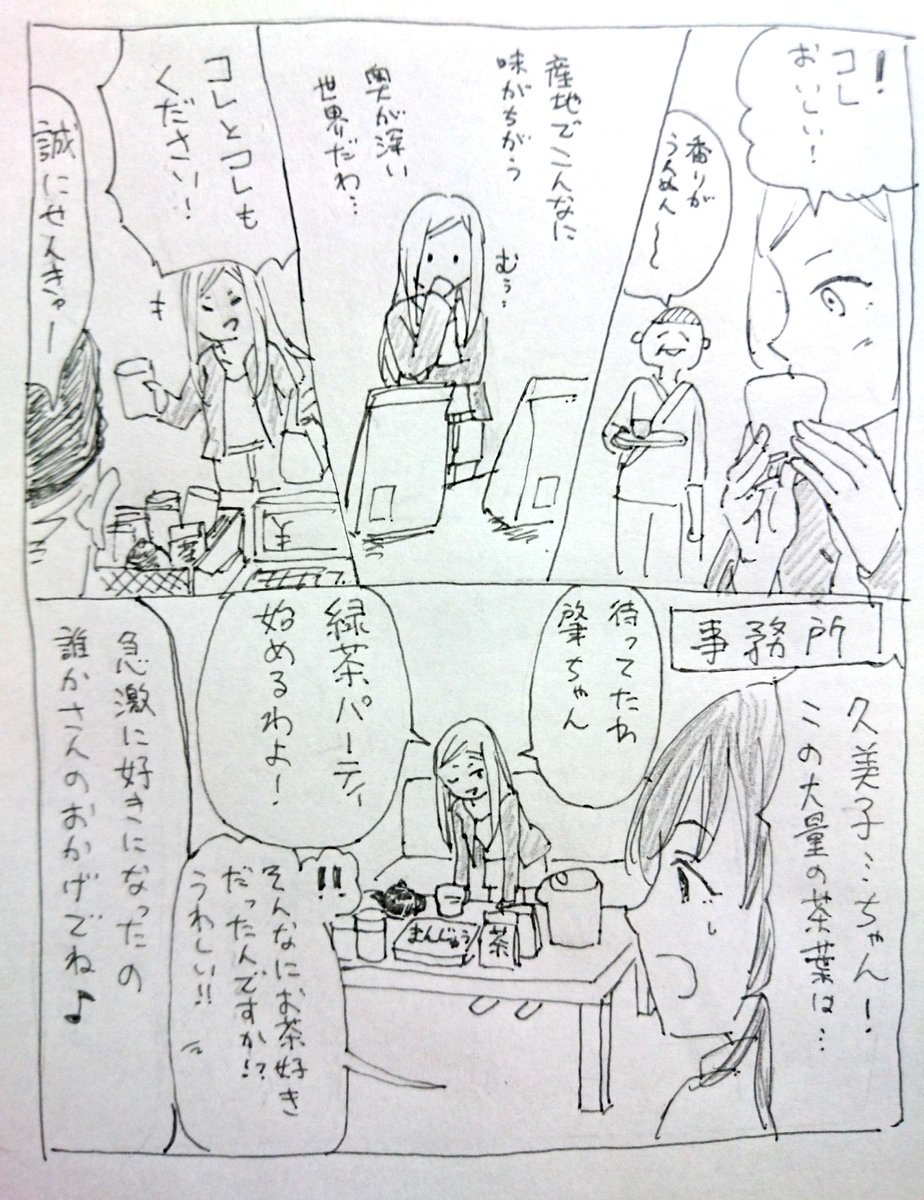 !
コレ
おいしい!
香りが
産地でこんなに
味がちがう
むぅ…
奥が深い
世界だわ…
コレとコレも
ください!
誠にせんきゅー
茶
¥
事務所
久美子…ちゃん!
この大量の茶葉は…
待ってたわ
肇ちゃん
緑茶パーティ
始めるわよ!
まんじゅう
茶
!!
そんなにお茶好き
だったんですか!?
うれしい!!
急激に好きになったの
誰かさんのおかげでね♪